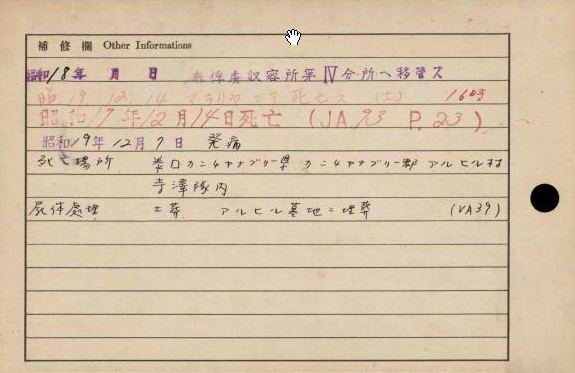 補修欄 Other Informations
昭和18年 月 日 泰俘虜収容所第Ⅳ分所ヘ移管ス
昭19.12.14 マラリヤニテ死亡ス (土) 1603
昭和19年12月14日死亡 (JA 93 P.23)
昭和19年12月7日 発病
死亡場所 泰国カニヤナブリー県 カニヤナブリー郡 アルヒル村
寺澤隊内
屍体處理 土葬 アルヒル墓地ニ埋葬 (VA39)